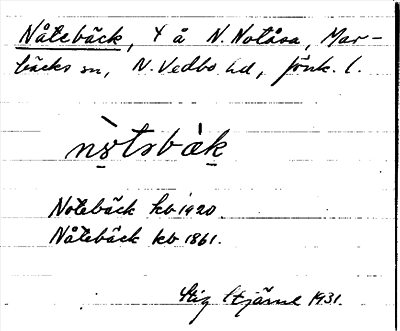 Nåtebäck, 4 å N. Notåsa, Mar-
bäcks sn, N. Vedbo hd, Jönk. l.
nø̀tsbàk
Notebäck kb 1920.
Nåtebäck kb 1861.
Stig Stjärne 1931.